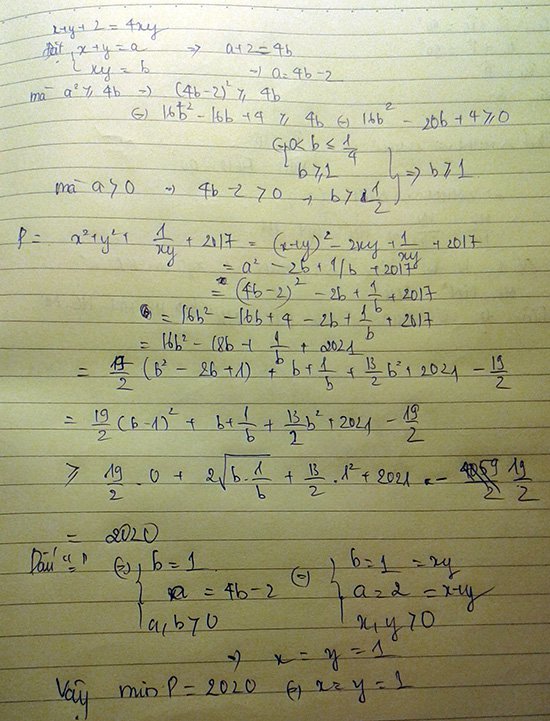 x+y+2 = 4xy
đặt { x+y = a => a+2 = 4b
xy = b -> a = 4b-2
mà a² ≥ 4b -> (4b-2)² ≥ 4b
(=) 16b² - 16b + 4 ≥ 4b (=) 16b² - 20b + 4 ≥ 0
(=) 0 < b ≤ 1/4
b ≥ 1 } => b ≥ 1
mà a > 0 -> 4b - 2 > 0 -> b > 1/2
P = x² + y² + 1/xy + 2017 = (x+y)² - 2xy + 1/xy + 2017
= a² - 2b + 1/b + 2017
= (4b-2)² - 2b + 1/b + 2017
= 16b² - 16b + 4 - 2b + 1/b + 2017
= 16b² - 18b + 1/b + 2021
= 19/2 (b² - 2b + 1) + b + 1/b + 13/2 b² + 2021 - 19/2
= 19/2 (b-1)² + b + 1/b + 13/2 b² + 2021 - 19/2
≥ 19/2 . 0 + 2√(b . 1/b) + 13/2 . 1² + 2021 - 19/2
= 2020
Dấu "=" (=) { b = 1 (=) { b = 1 = xy
a = 4b-2 a = 2 = x+y
a, b > 0 x, y > 0
=> x = y = 1
Vậy min P = 2020 (=) x = y = 1